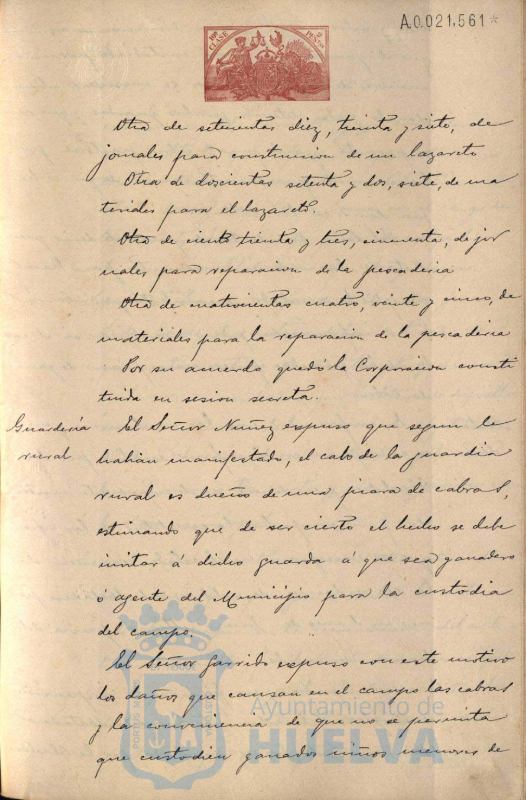 A.0.021.561*
10ª CLASE
2 PESETAS
Otra de setecientas diez, treinta y siete, de
jornales para construccion de un lazareto
Otra de doscientas setenta y dos, siete, de ma
teriales para el lazareto.
Otra de ciento treinta y tres, cincuenta, de jor
nales para reparacion de la pescaderia
Otra de cuatrocientas cuatro, veinte y cinco, de
materiales para la reparacion de la pescaderia
Por su acuerdo quedó la Corporacion consti
tuida en sesion secreta.
Guardería
rural
El Señor Nuñez expuso que segun le
habian manifestado, el cabo de la guardia
rural es dueños de una piara de cabras,
estimando que de ser cierto el hecho se debe
invitar á dicho guarda á que sea ganadero
ó agente del Municipio para la custodia
del campo.
El Señor Garrido expuso con este motivo
los daños que causan en el campo las cabras
y la conveniencia de que no se permita
que custodien ganados niños menores de
Ayuntamiento de
HUELVA